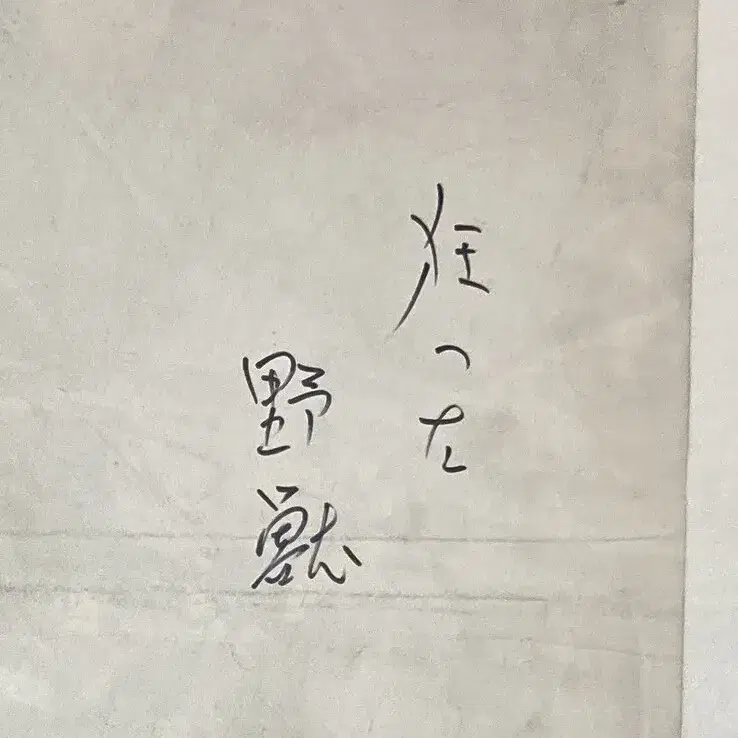 狂った
野獣